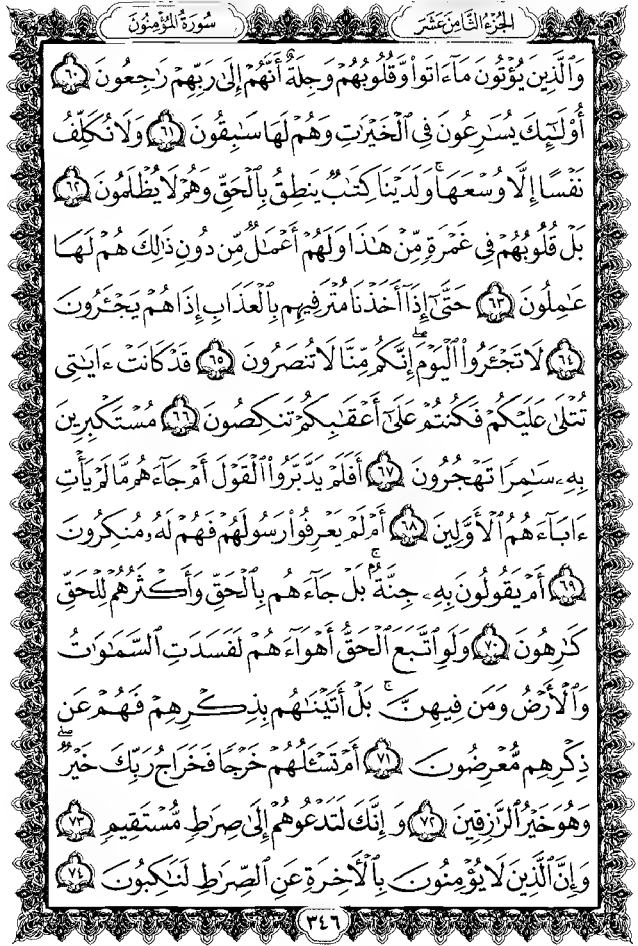 الجزء الثامن عشر
سورة المؤمنون
وَالَّذِينَ يُؤْتُونَ مَآ ءَاتَوا۟ وَّقُلُوبُهُمْ وَجِلَةٌ أَنَّهُمْ إِلَىٰ رَبِّهِمْ رَٰجِعُونَ ٦٠
أُو۟لَٰٓئِكَ يُسَٰرِعُونَ فِى ٱلْخَيْرَٰتِ وَهُمْ لَهَا سَٰبِقُونَ ٦١ وَلَا نُكَلِّفُ
نَفْسًا إِلَّا وُسْعَهَا ۚ وَلَدَيْنَا كِتَٰبٌ يَنطِقُ بِٱلْحَقِّ وَهُمْ لَا يُظْلَمُونَ ٦٢
بَلْ قُلُوبُهُمْ فِى غَمْرَةٍ مِّنْ هَٰذَا وَلَهُمْ أَعْمَٰلٌ مِّن دُونِ ذَٰلِكَ هُمْ لَهَا
عَٰمِلُونَ ٦٣ حَتَّىٰٓ إِذَآ أَخَذْنَا مُتْرَفِيهِم بِٱلْعَذَابِ إِذَا هُمْ يَجْـَٔرُونَ
٦٤ لَا تَجْـَٔرُوا۟ ٱلْيَوْمَ ۖ إِنَّكُم مِّنَّا لَا تُنصَرُونَ ٦٥ قَدْ كَانَتْ ءَايَٰتِى
تُتْلَىٰ عَلَيْكُمْ فَكُنتُمْ عَلَىٰٓ أَعْقَٰبِكُمْ تَنكِصُونَ ٦٦ مُسْتَكْبِرِينَ
بِهِۦ سَٰمِرًا تَهْجُرُونَ ٦٧ أَفَلَمْ يَدَّبَّرُوا۟ ٱلْقَوْلَ أَمْ جَآءَهُم مَّا لَمْ يَأْتِ
ءَابَآءَهُمُ ٱلْأَوَّلِينَ ٦٨ أَمْ لَمْ يَعْرِفُوا۟ رَسُولَهُمْ فَهُمْ لَهُۥ مُنكِرُونَ
٦٩ أَمْ يَقُولُونَ بِهِۦ جِنَّةٌۢ ۚ بَلْ جَآءَهُم بِٱلْحَقِّ وَأَكْثَرُهُمْ لِلْحَقِّ
كَٰرِهُونَ ٧٠ وَلَوِ ٱتَّبَعَ ٱلْحَقُّ أَهْوَآءَهُمْ لَفَسَدَتِ ٱلسَّمَٰوَٰتُ
وَٱلْأَرْضُ وَمَن فِيهِنَّ ۚ بَلْ أَتَيْنَٰهُم بِذِكْرِهِمْ فَهُمْ عَن
ذِكْرِهِم مُّعْرِضُونَ ٧١ أَمْ تَسْـَٔلُهُمْ خَرْجًا فَخَرَاجُ رَبِّكَ خَيْرٌ ۖ
وَهُوَ خَيْرُ ٱلرَّٰزِقِينَ ٧٢ وَإِنَّكَ لَتَدْعُوهُمْ إِلَىٰ صِرَٰطٍ مُّسْتَقِيمٍ ٧٣
وَإِنَّ ٱلَّذِينَ لَا يُؤْمِنُونَ بِٱلْأَخِرَةِ عَنِ ٱلصِّرَٰطِ لَنَٰكِبُونَ ٧٤
٣٤٦